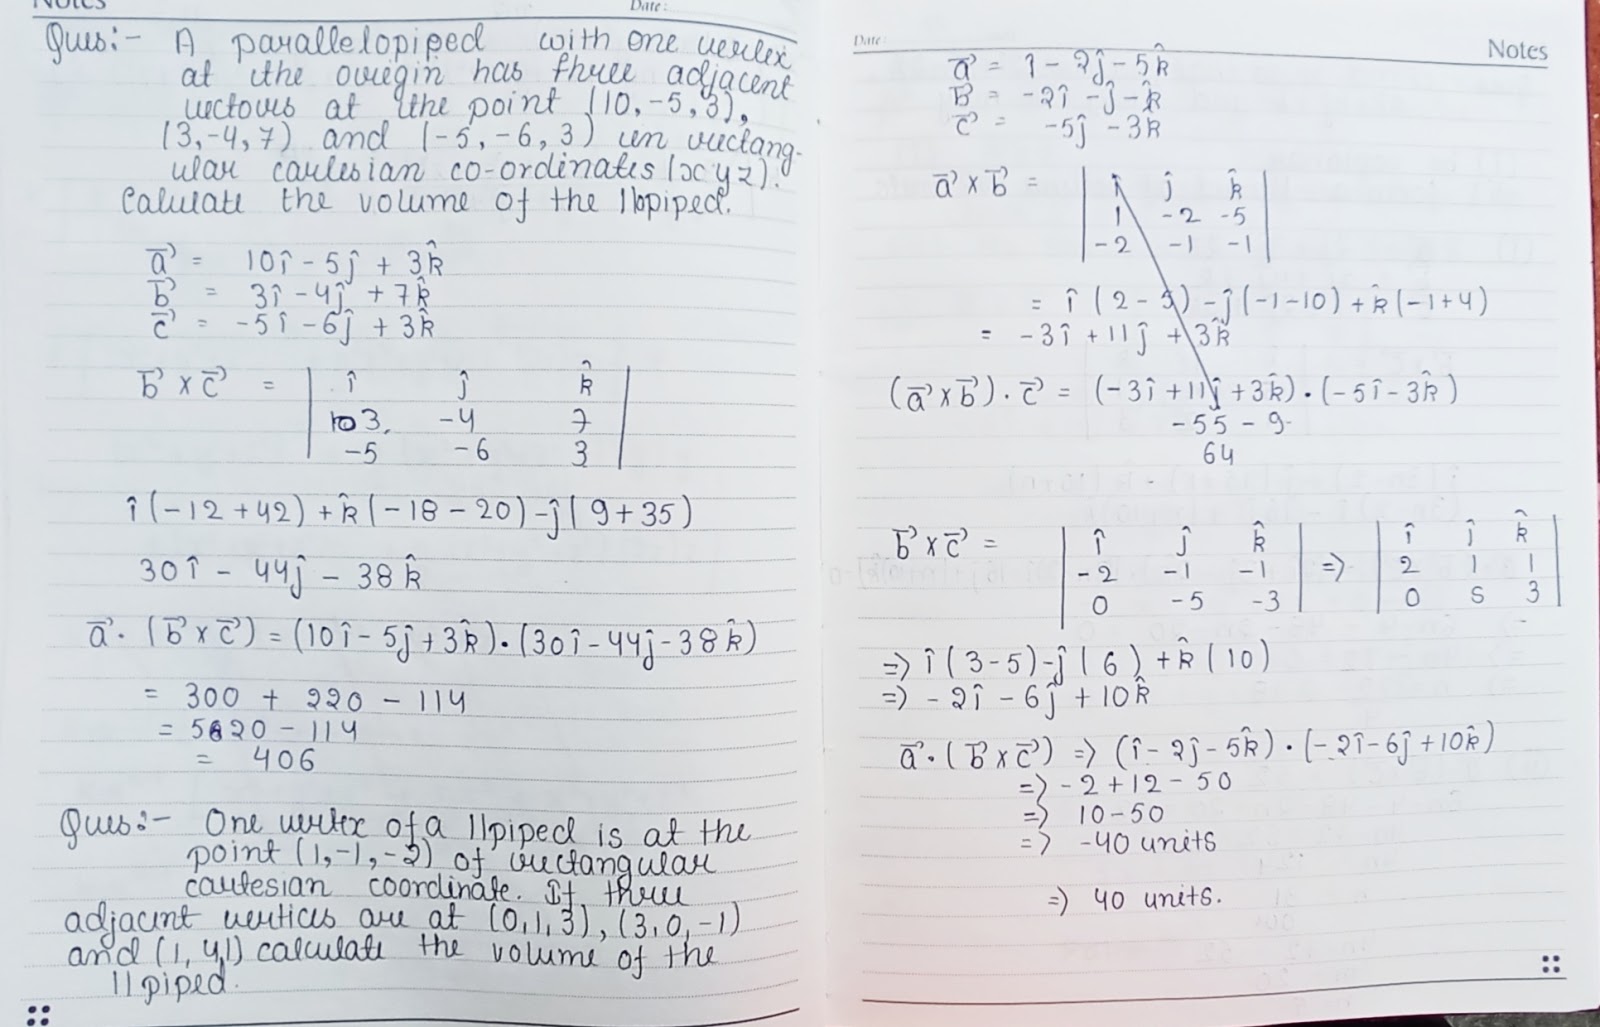 Notes
Date:
Ques:- A parallelopiped with one vertex
at the origin has three adjacent
vectors at the point (10,-5,3),
(3,-4,7) and (-5,-6,3) in rectang-
ular cartesian co-ordinates (xyz).
Calulate the volume of the llopiped.
a⃗ = 10î - 5ĵ + 3k̂
b⃗ = 3î - 4ĵ + 7k̂
c⃗ = -5î - 6ĵ + 3k̂
b⃗ × c⃗ = | î ĵ k̂ |
3 -4 7
-5 -6 3
î(-12+42) + k̂(-18-20) - ĵ(9+35)
30î - 44ĵ - 38k̂
a⃗ · (b⃗ × c⃗) = (10î - 5ĵ + 3k̂) · (30î - 44ĵ - 38k̂)
= 300 + 220 - 114
= 520 - 114
= 406
Ques:- One vertex of a llpiped is at the
point (1,-1,-2) of rectangular
cartesian coordinate. If three
adjacent vertices are at (0,1,3), (3,0,-1)
and (1,4,1) calculate the volume of the
llpiped.
Date:
Notes
a⃗ = 1 - 2ĵ - 5k̂
b⃗ = -2î - ĵ - k̂
c⃗ = -5ĵ - 3k̂
a⃗ × b⃗ = | î ĵ k̂ |
1 -2 -5
-2 -1 -1
= î(2-5) - ĵ(-1-10) + k̂(-1+4)
= -3î + 11ĵ + 3k̂
(a⃗ × b⃗) · c⃗ = (-3î + 11ĵ + 3k̂) · (-5î - 3k̂)
-55 - 9
64
b⃗ × c⃗ = | î ĵ k̂ | => | î ĵ k̂ |
-2 -1 -1 2 1 1
0 -5 -3 0 5 3
=> î(3-5) - ĵ(6) + k̂(10)
=> -2î - 6ĵ + 10k̂
a⃗ · (b⃗ × c⃗) => (î - 2ĵ - 5k̂) · (-2î - 6ĵ + 10k̂)
=> -2 + 12 - 50
=> 10 - 50
=> -40 units
=> 40 units.